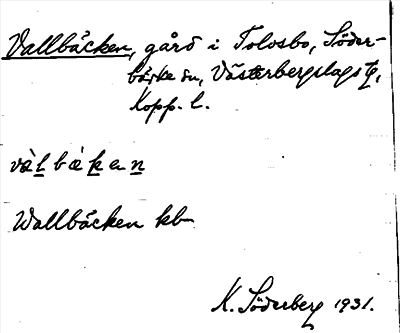 Vallbäcken, gård i Tolosbo, Söder-
bärke sn, Västerbergslags tg,
Kopp. l.
và̀l bæ̀k e n
Wallbäcken kb
K. Söderberg 1931.